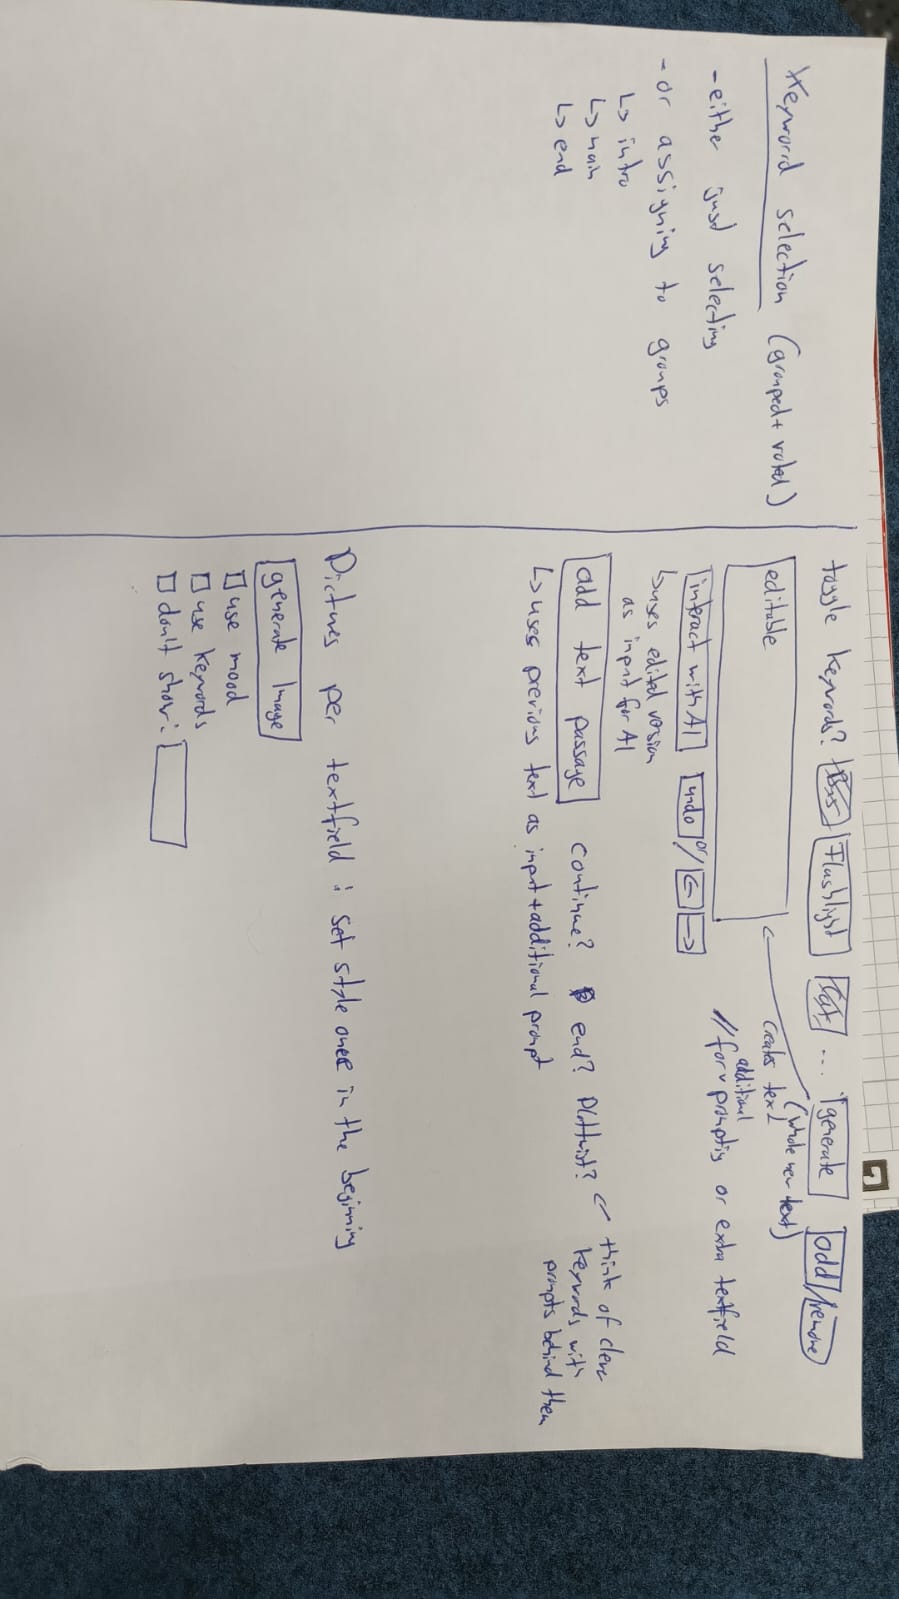 Keyword selection (grouped + voted)
- either just selecting
- or assigning to groups
↳ intro
↳ main
↳ end
toggle keywords? Flashlight ... generate add/remove
(whole new text)
editable
creates text
additional
// for prompting or extra textfield
interact with AI undo or/ ← →
↳ uses edited version
as input for AI
add text passage continue? end? Plottwist?
think of clever
keywords with
prompts behind them
↳ uses previous text as input + additional prompt
Pictures per textfield : set style once in the beginning
generate Image
□ use mood
□ use keywords
□ don't show: